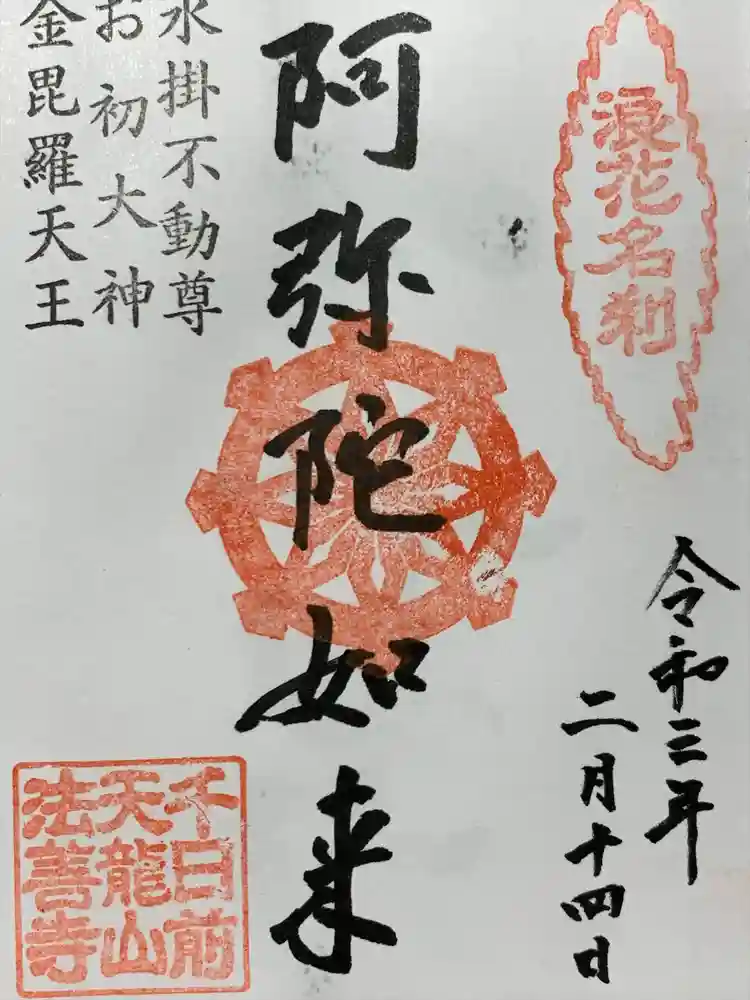 浪花名刹
令和三年
二月十四日
阿弥陀如来
水掛不動尊
お初大神
金毘羅天王
千日前
天龍山
法善寺